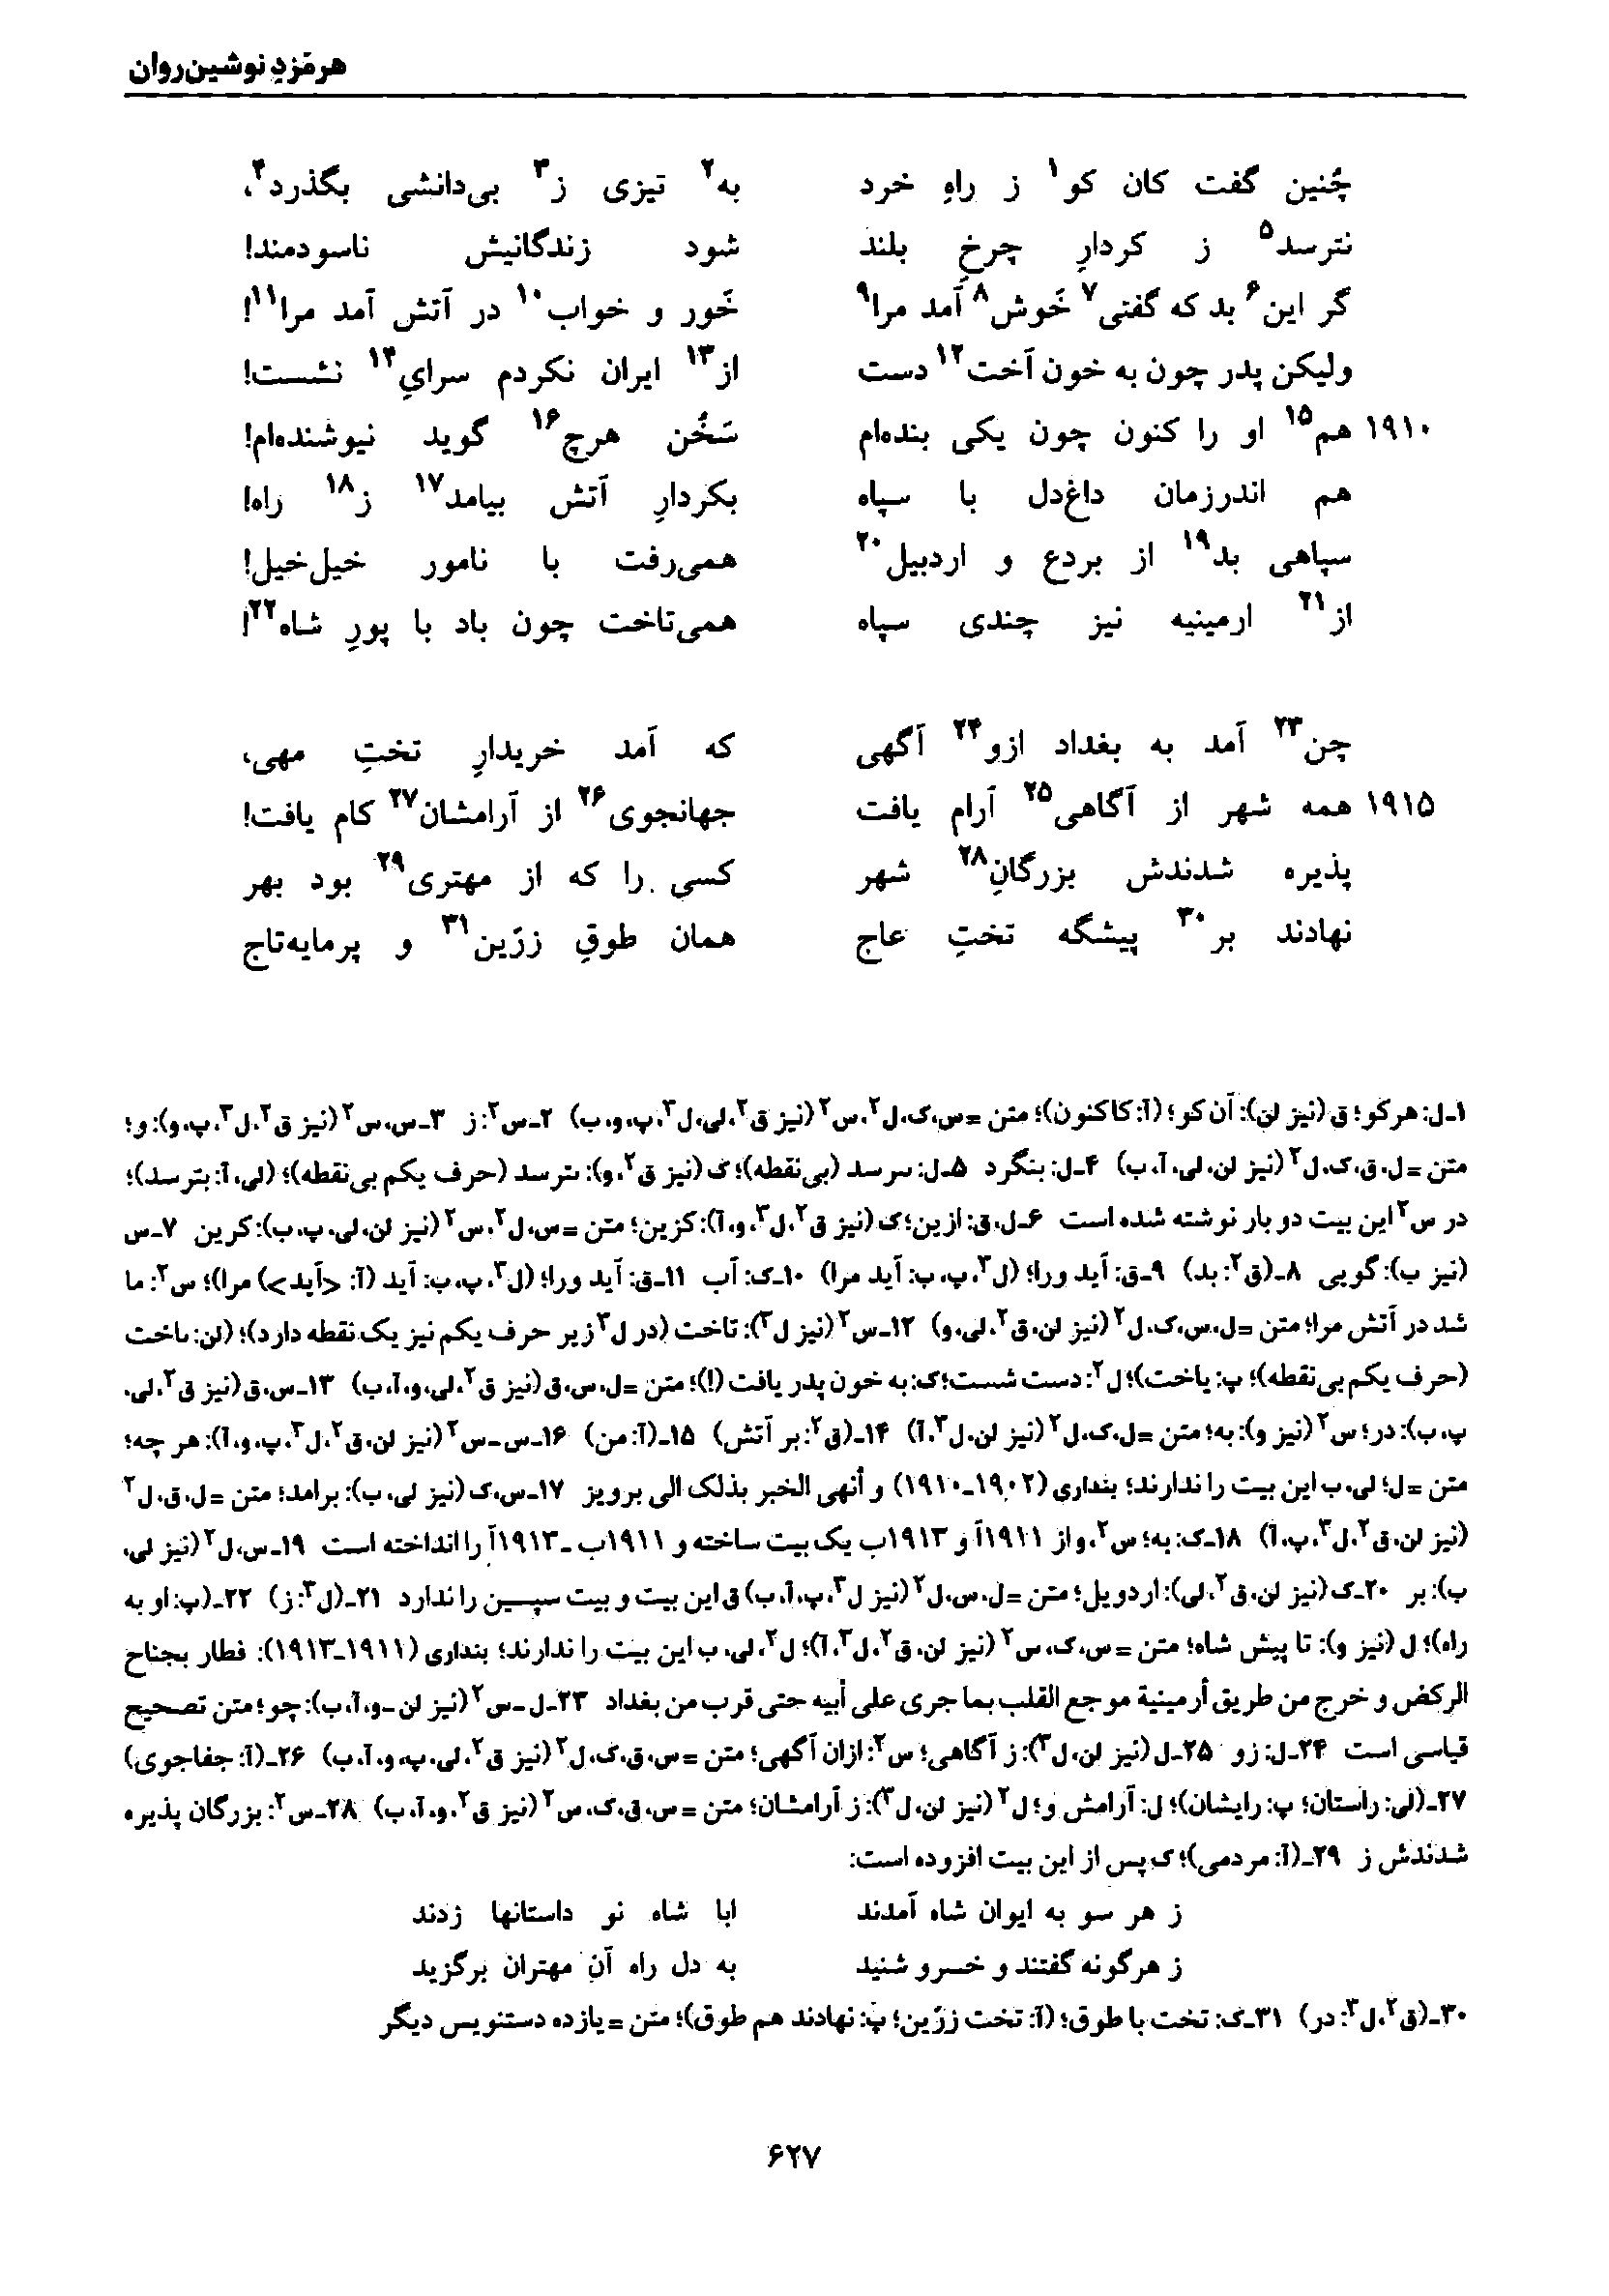 هرمَزدِ نوشین‌روان
چُنین گفت کان کو۱ ز راهِ خرد به۲ تیزی ز۳ بی‌دانشی بگذرد۴،
نترسد۵ ز کردارِ چرخِ بلند شود زندگانیش ناسودمند!
گر این۶ بد که گفتی۷ خَوش۸ آمد مرا۹ خَور و خواب۱۰ در آتش آمد مرا۱۱!
ولیکن پدر چون به خون آخت۱۲ دست از۱۳ ایران نکردم سرایِ۱۴ نشست!
۱۹۱۰ هم۱۵ او را کنون چون یکی بنده‌ام سَخُن هرچ۱۶ گوید نیوشنده‌ام!
هم اندرزمان داغ‌دل با سپاه بکردارِ آتش بیامد۱۷ ز۱۸ راه!
سپاهی بد۱۹ از بردع و اردبیل۲۰ همی‌رفت با نامور خیل‌خیل!
از۲۱ ارمینیه نیز چندی سپاه همی‌تاخت چون باد با پورِ شاه۲۲!
چن۲۳ آمد به بغداد ازو۲۴ آگهی که آمد خریدارِ تختِ مهی،
۱۹۱۵ همه شهر از آگاهی۲۵ آرام یافت جهانجوی۲۶ از آرامشان۲۷ کام یافت!
پذیره شدندش بزرگانِ۲۸ شهر کسی را که از مهتری۲۹ بود بهر
نهادند بر۳۰ پیشگه تختِ عاج همان طوقِ زرّین۳۱ و پرمایه‌تاج
۱ـ ل: هرکو؛ ق (نیز لن): آن کو؛ (آ: کاکنون)؛ متن = س، ک، ل۲، س۲ (نیز ق۲، لی، ل۳، پ، و، ب) ۲ـ س۲: ز ۳ـ س، س۲ (نیز ق۲، ل۳، پ، و): و؛
متن = ل، ق، ک، ل۲ (نیز لن، لی، آ، ب) ۴ـ ل: بنگرد ۵ـ ل: ٮرسد (بی‌نقطه)؛ ک (نیز ق۲، و): ٮترسد (حرف یکم بی‌نقطه)؛ (لی، آ: بترسد)؛
در س۲ این بیت دو بار نوشته شده است ۶ـ ل، ق: ازین؛ ک (نیز ق۲، ل۳، و، آ): کزین؛ متن = س، ل۲، س۲ (نیز لن، لی، پ، ب): کرین ۷ـ س
(نیز ب): گویی ۸ـ (ق۲: بد) ۹ـ ق: آید ورا؛ (ل۳، پ، ب: آید مرا) ۱۰ـ ک: آب ۱۱ـ ق: آید ورا؛ (ل۳، پ، ب: آید (آ: <آید>) مرا)؛ س۲: ما
شد در آتش مرا؛ متن = ل، س، ک، ل۲ (نیز لن، ق۲، لی، و) ۱۲ـ س۲ (نیز ل۳): تاخت (در ل۳ زیر حرف یکم نیز یک نقطه دارد)؛ (لن: ٮاخت
(حرف یکم بی‌نقطه)؛ پ: یاخت)؛ ل۲: دست شست؛ ک: به خون پدر یافت (!)؛ متن = ل، س، ق (نیز ق۲، لی، و، آ، ب) ۱۳ـ س، ق (نیز ق۲، لی،
پ، ب): در؛ س۲ (نیز و): به؛ متن = ل، ک، ل۲ (نیز لن، ل۳، آ) ۱۴ـ (ق۲: بر آتش) ۱۵ـ (آ: من) ۱۶ـ س ـ س۲ (نیز لن، ق۲، ل۳، پ، و، آ): هر چه؛
متن = ل؛ لی، ب این بیت را ندارند؛ بنداری (۱۹۰۲ـ۱۹۱۰) و أنهی الخبر بذلک الی برویز ۱۷ـ س، ک (نیز لی، ب): برامد؛ متن = ل، ق، ل۲
(نیز لن، ق۲، ل۳، پ، آ) ۱۸ـ ک: به؛ س۲، و از ۱۹۱۱آ و ۱۹۱۳ب یک بیت ساخته و ۱۹۱۱ب ـ ۱۹۱۳آ را انداخته است ۱۹ـ س، ل۲ (نیز لی،
ب): بر ۲۰ـ ک (نیز لن، ق۲، لی): اردویل؛ متن = ل، س، ل۲ (نیز ل۳، پ، آ، ب) ق این بیت و بیت سپسین را ندارد ۲۱ـ (ل۳: ز) ۲۲ـ (پ: او به
راه)؛ ل (نیز و): تا پیش شاه؛ متن = س، ک، س۲ (نیز لن، ق۲، ل۳، آ)؛ ل۲، لی، ب این بیت را ندارند؛ بنداری (۱۹۱۱ـ۱۹۱۳): فطار بجناح
الرکض و خرج من طریق أرمینیة موجع القلب بما جری علی أبیه حتی قرب من بغداد ۲۳ـ ل ـ س۲ (نیز لن ـ و، آ، ب): چو؛ متن تصحیح
قیاسی است ۲۴ـ ل: زو ۲۵ـ ل (نیز لن، ل۳): ز آگاهی؛ س۲: ازان آگهی؛ متن = س، ق، ک، ل۲ (نیز ق۲، لی، پ، و، آ، ب) ۲۶ـ (آ: جفاجوی)
۲۷ـ (لی: راستان؛ پ: رایشان)؛ ل: آرامش و؛ ل۲ (نیز لن، ل۳): ز آرامشان؛ متن = س، ق، ک، س۲ (نیز ق۲، و، آ، ب) ۲۸ـ س۲: بزرگان پذیره
شدندش ز ۲۹ـ (آ: مردمی)؛ ک پس از این بیت افزوده است:
ز هر سو به ایوان شاه آمدند ابا شاه نو داستانها زدند
ز هرگونه گفتند و خسرو شنید به دل راه آن مهتران برگزید
۳۰ـ (ق۲، ل۳: در) ۳۱ـ ک: تخت با طوق؛ (آ: تخت زرّین؛ پ: نهادند هم طوق)؛ متن = یازده دستنویس دیگر
۶۲۷